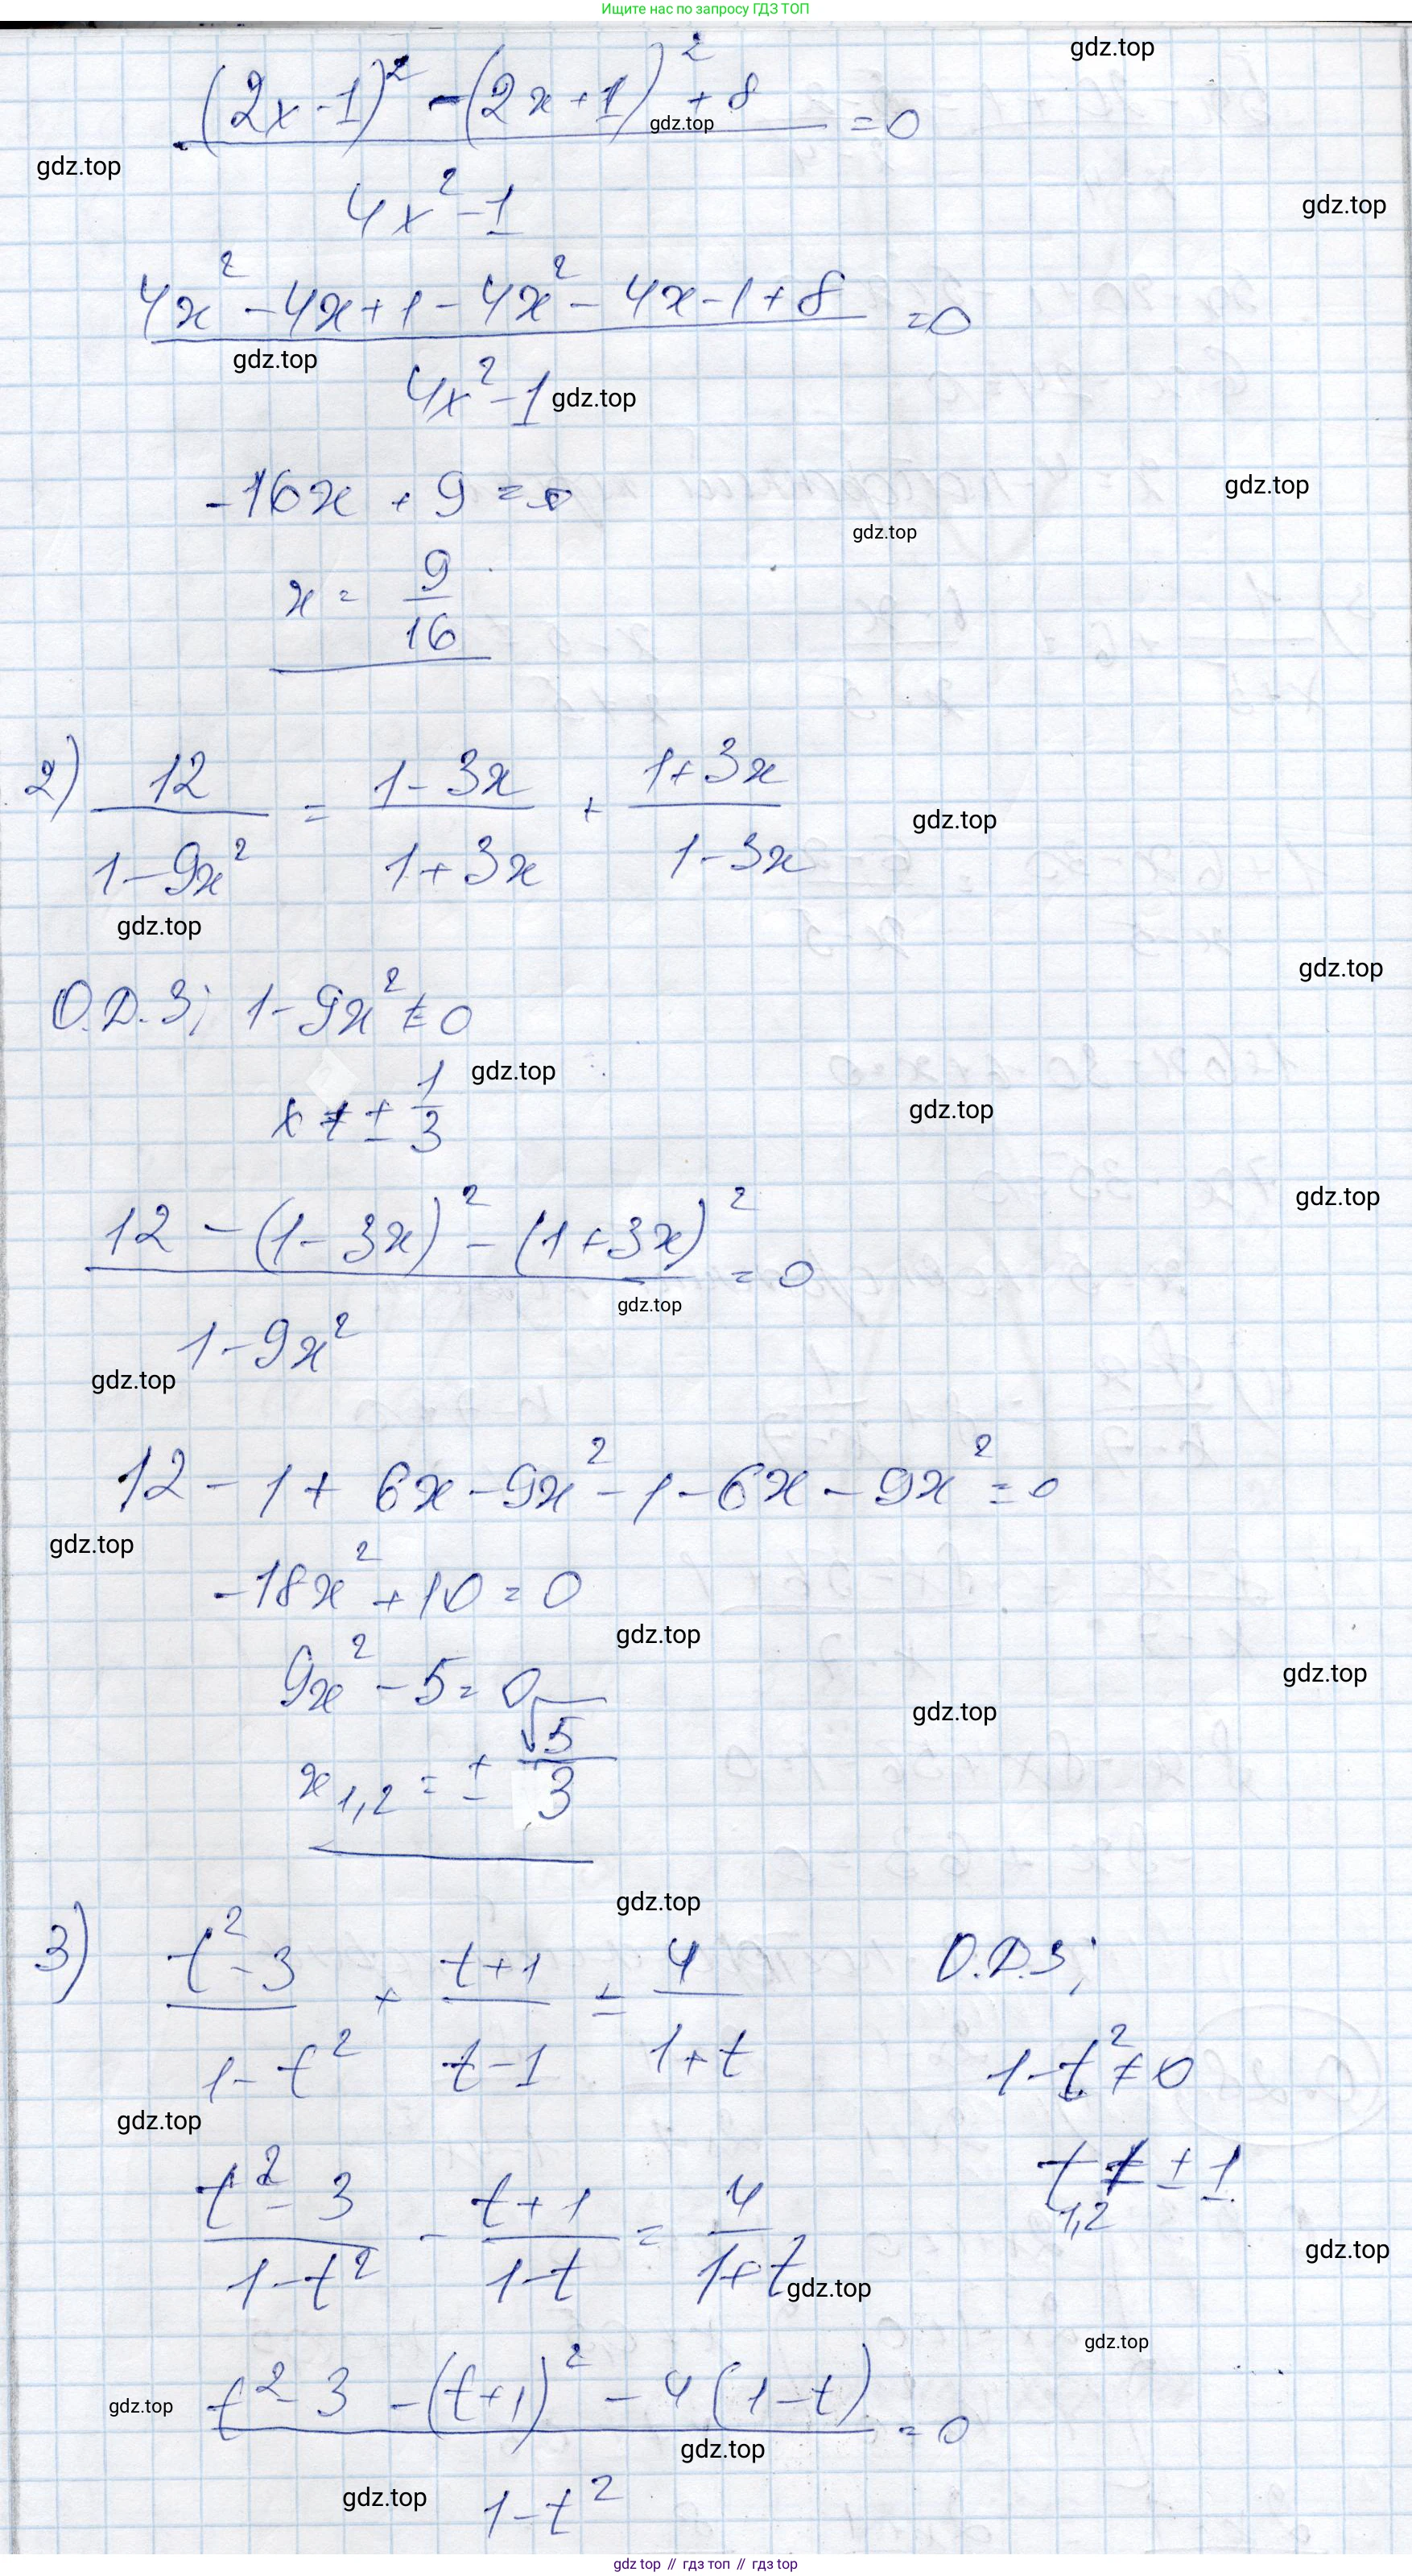 Ищите нас по запросу ГДЗ ТОП
gdz.top
(2x-1)² - (2x+1)² + 8
gdz.top
= 0
gdz.top
4x² - 1
gdz.top
4x² - 4x + 1 - 4x² - 4x - 1 + 8
= 0
gdz.top
4x² - 1
gdz.top
-16x + 9 = 0
gdz.top
gdz.top
x = 9/16
2) 12/(1-9x²) = (1-3x)/(1+3x) + (1+3x)/(1-3x)
gdz.top
gdz.top
gdz.top
О.Д.З; 1-9x² ≠ 0
gdz.top
x ≠ ± 1/3
gdz.top
gdz.top
12 - (1-3x)² - (1+3x)²
= 0
gdz.top
1-9x²
gdz.top
12 - 1 + 6x - 9x² - 1 - 6x - 9x² = 0
gdz.top
-18x² + 10 = 0
gdz.top
9x² - 5 = 0
gdz.top
gdz.top
x1,2 = ± √5/3
gdz.top
3) (t²-3)/(1-t²) + (t+1)/(t-1) = 4/(1+t)
О.Д.З;
1-t² ≠ 0
gdz.top
t1,2 ≠ ± 1
(t²-3)/(1-t²) - (t+1)/(1-t) = 4/(1+t)
gdz.top
gdz.top
gdz.top
gdz.top
t² - 3 - (t+1)² - 4(1-t)
= 0
gdz.top
gdz.top
1-t²
gdz top // гдз топ // гдз top